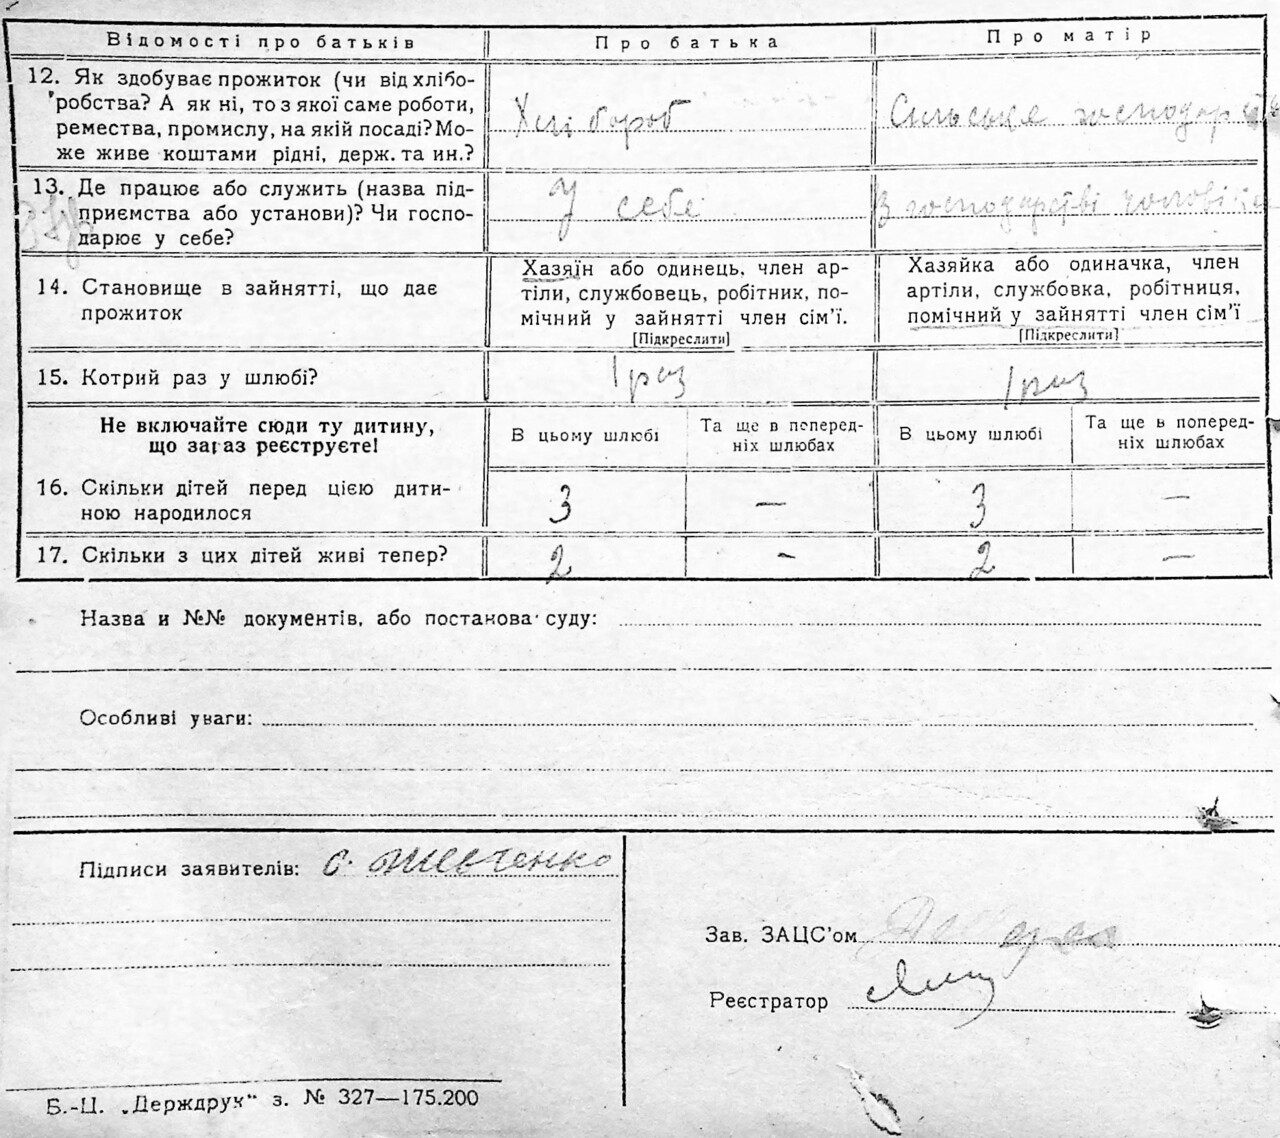 Відомості про батьків
Про батька
Про матір
12. Як здобуває прожиток (чи від хлібо-
робства? А як ні, то з якої саме роботи,
ремества, промислу, на якій посаді? Мо-
же живе коштами рідні, держ. та ин.?
Хлібороб
Сильське господарств
13. Де працює або служить (назва під-
приємства або установи)? Чи госпо-
дарює у себе?
У себе
В господарстві чоловіка
14. Становище в зайнятті, що дає
прожиток
Хазяїн або одинець, член ар-
тіли, службовець, робітник, по-
мічний у зайнятті член сім'ї.
[Підкреслити]
Хазяйка або одиначка, член
артіли, службовка, робітниця,
помічний у зайнятті член сім'ї
[Підкреслити]
15. Котрий раз у шлюбі?
1 раз
1 раз
Не включайте сюди ту дитину,
що зараз реєструєте!
В цьому шлюбі
Та ще в поперед-
ніх шлюбах
В цьому шлюбі
Та ще в поперед-
ніх шлюбах
16. Скільки дітей перед цією дити-
ною народилося
3
—
3
—
17. Скільки з цих дітей живі тепер?
2
-
2
—
Назва и №№ документів, або постанова суду:
Особливі уваги:
Підписи заявителів: С. Шевченко
Зав. ЗАЦС'ом
Реєстратор
Б.-Ц. „Держдрук" з. № 327—175.200